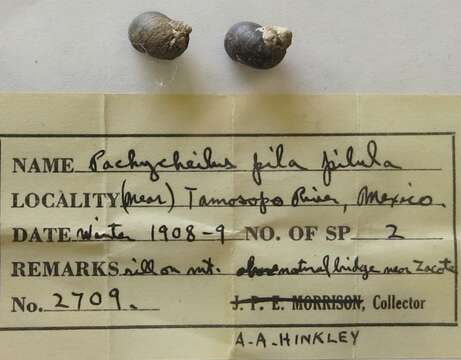 NAME Pachycheilus pila pilula
LOCALITY (near) Tamosopo River, Mexico.
DATE Winter 1908-9 NO. OF SP. 2
REMARKS rill on mt. above natural bridge near Zacate
No. 2709. J. P. E. MORRISON, Collector
A.A. HINKLEY